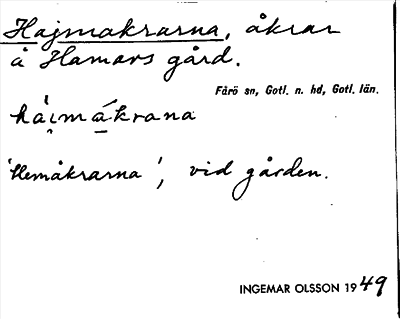 Hajmakrarna, åkrar
å Hamars gård.
Fårö sn, Gotl. n. hd, Gotl. län.
hàimákrana
'Hemåkrarna', vid gården.
INGEMAR OLSSON 1949